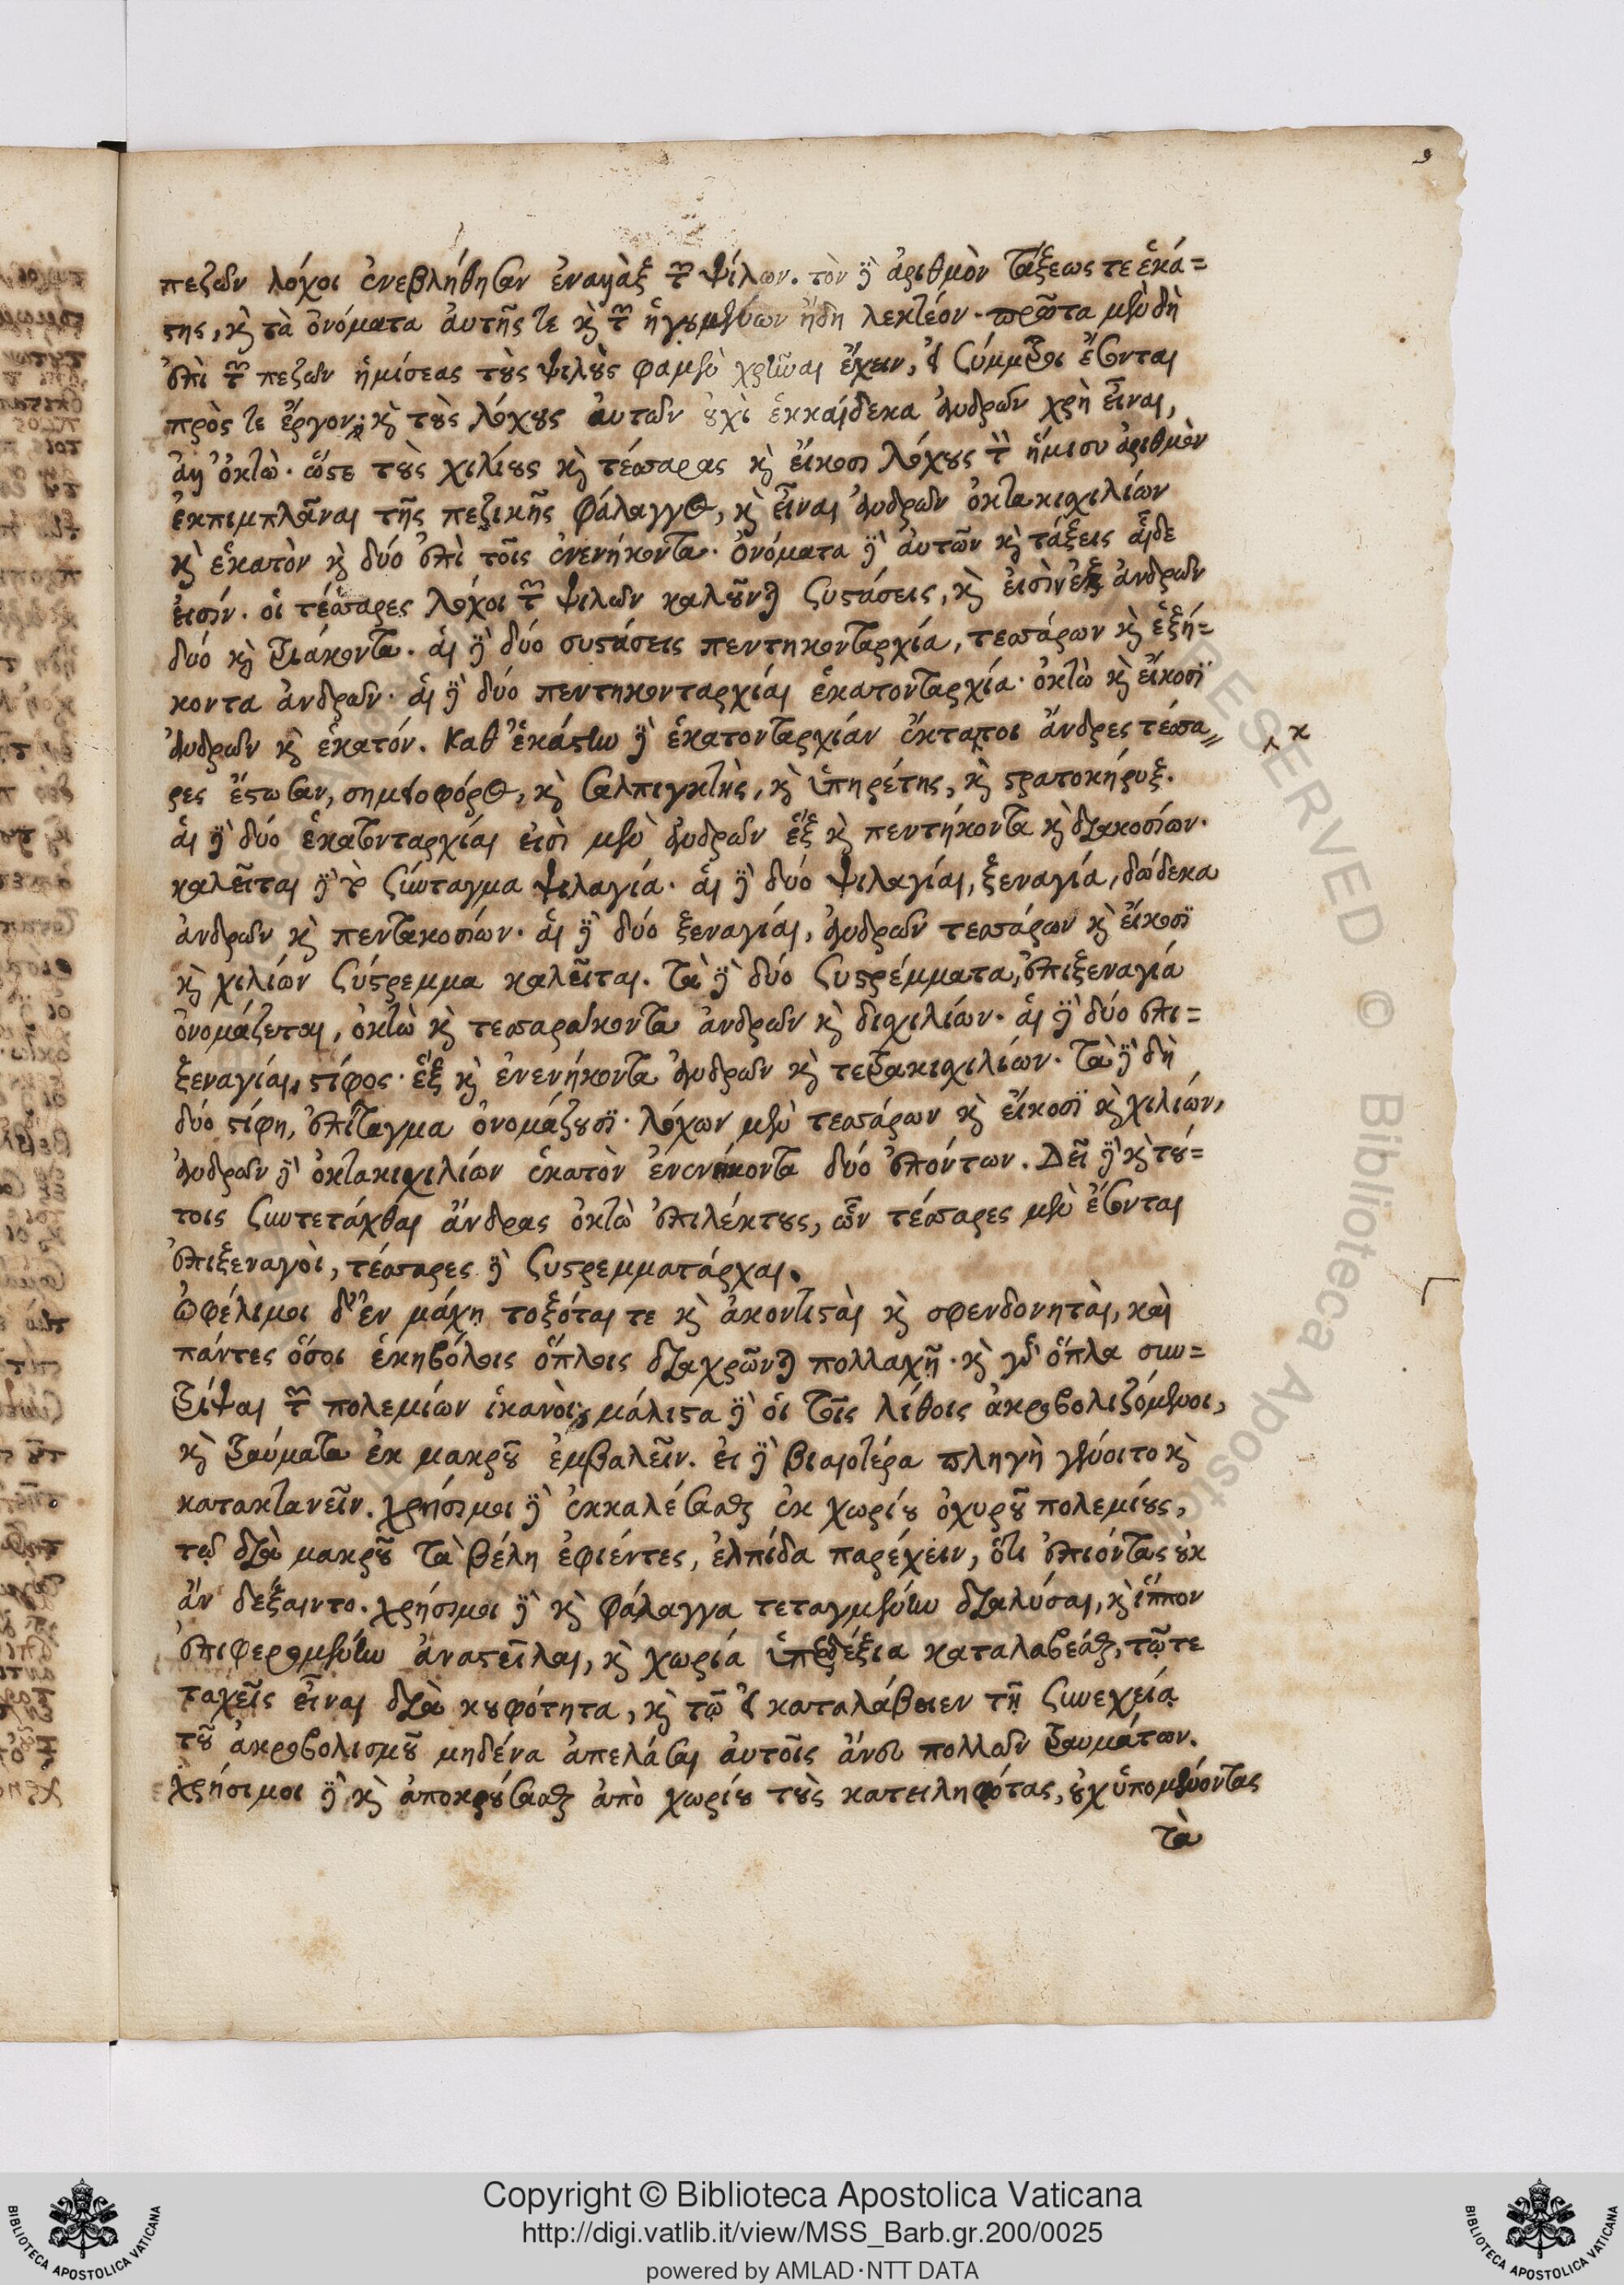 9
πεζῶν λόχοι ἐνεβλήθησαν ἐναλλὰξ τῶν ψίλων. τὸν δὲ ἀριθμὸν τάξεώς τε ἑκά=
στης, κὶ τὰ ὀνόματα ἀυτῆς τε κὶ τῶν ἡγουμένων ἤδη λεκτέον. πρῶτα μὲν δὴ
ἐπὶ τῶν πεζῶν ἡμίσεας τοὺς ψιλοὺς φαμὲν χρῆναι ἔχειν, εἰ σύμμετροι ἔσονται
πρός τε ἔργον; κὶ τοὺς λόχους ἀυτῶν οὐχὶ ἑκκαίδεκα ἀνδρῶν χρὴ εἶναι,
ἀλλ' ὀκτὼ. ὥστε τοὺς χιλίους κὶ τέσσαρας κὶ εἴκοσι λόχους τὸν ἥμισυ ἀριθμὸν
ἐκπιμπλᾶναι τῆς πεζικῆς φάλαγγος, κὶ εἶναι ἀνδρῶν ὀκτακιχιλίων
κὶ ἑκατὸν κὶ δύο ἐπὶ τοῖς ἐνενήκοντα. ὀνόματα δὲ ἀυτῶν κὶ τάξεις αἵδε
ἐισίν. οἱ τέσσαρες λόχοι τῶν ψιλῶν καλοῦνται συστάσεις, κὶ εἰσὶν ἐξ ἀνδρῶν
δύο κὶ τριάκοντα. ἁι δὲ δύο συστάσεις πεντηκονταρχία, τεσσάρων κὶ ἑξή=
κοντα ἀνδρῶν. ἁι δὲ δύο πεντηκονταρχίαι ἑκατονταρχία. ὀκτὼ κὶ εἴκοσι
ἀνδρῶν κὶ ἑκατόν. καθ' ἑκάστην δὲ ἑκατονταρχίαν ἔκτακτοι ἄνδρες τέσσα=
ρες ἔστωσαν, σημειοφόρος, κὶ σαλπιγκτὴς, κὶ ὑπηρέτης, κὶ στρατοκήρυξ.
ἁι δὲ δύο ἑκατονταρχίαι εἰσὶ μὲν ἀνδρῶν ἓξ κὶ πεντήκοντα κὶ διακοσίων.
καλεῖται δὲ τὸ σύνταγμα ψιλαγία. ἁι δὲ δύο ψιλαγίαι, ξεναγία, δώδεκα
ἀνδρῶν κὶ πεντακοσίων. ἁι δὲ δύο ξεναγίαι, ἀνδρῶν τεσσάρων κὶ εἴκοσι
κὶ χιλίων σύστρεμμα καλεῖται. τὰ δὲ δύο συστρέμματα, ἐπιξεναγία
ὀνομάζεται, ὀκτὼ κὶ τεσσαράκοντα ἀνδρῶν κὶ διχιλίων. ἁι δὲ δύο ἐπι=
ξεναγίαι, στίφος. ἓξ κὶ ἐνενήκοντα ἀνδρῶν κὶ τετρακιχιλίων. τὰ δὲ δὴ
δύο στίφη, ἐπίταγμα ὀνομάζουσι. λόχων μὲν τεσσάρων κὶ εἴκοσι κὶ χιλίων,
ἀνδρῶν δὲ ὀκτακιχιλίων ἑκατὸν ἐνενήκοντα δύο ἐπόντων. Δεῖ δὲ κὶ τού=
τοις συντετάχθαι ἄνδρας ὀκτὼ ἐπιλέκτους, ὧν τέσσαρες μὲν ἔσονται
ἐπιξεναγοὶ, τέσσαρες δὲ συστρεμματάρχαι.
ὠφέλιμοι δ' ἐν μάχῃ τοξόται τε κὶ ἀκοντισταὶ κὶ σφενδονηταὶ, καὶ
πάντες ὅσοι ἑκηβόλοις ὅπλοις διαχρῶνται πολλαχῇ. κὶ γὰρ ὅπλα συν=
τρίψαι τῶν πολεμίων ἱκανοὶ; μάλιστα δὲ οἱ τοῖς λίθοις ἀκροβολιζόμενοι,
κὶ τραύματα ἐκ μακροῦ ἐμβαλεῖν. εἰ δὲ βιαιοτέρα πληγὴ γένοιτο κὶ
κατακτανεῖν. χρήσιμοι δὲ ἐκκαλέσασθαι ἐκ χωρίου ὀχυροῦ πολεμίους,
τῷ διὰ μακροῦ τὰ βέλη ἐφιέντες, ἐλπίδα παρέχειν, ὅτι ἐπιόντας οὐκ
ἂν δέξαιντο. χρήσιμοι δὲ κὶ φάλαγγα τεταγμένην διαλύσαι, κὶ ἵππον
ἐπιφερομένην ἀναστεῖλαι, κὶ χωρία ὑπερδέξια καταλαβέσθαι, τῷ τε
ταχεῖς εἶναι διὰ κουφότητα, κὶ τῷ εἰ καταλάβοιεν τῇ συνεχείᾳ
τοῦ ἀκροβολισμοῦ μηδένα ἀπελάσαι ἀυτοῖς ἄνευ πολλῶν τραυμάτων.
χρήσιμοι δὲ κὶ ἀποκρούσασθαι ἀπὸ χωρίου τοὺς κατειληφότας, οὐχ ὑπομένοντας
τὰ
Copyright © Biblioteca Apostolica Vaticana
http://digi.vatlib.it/view/MSS_Barb.gr.200/0025
powered by AMLAD·NTT DATA